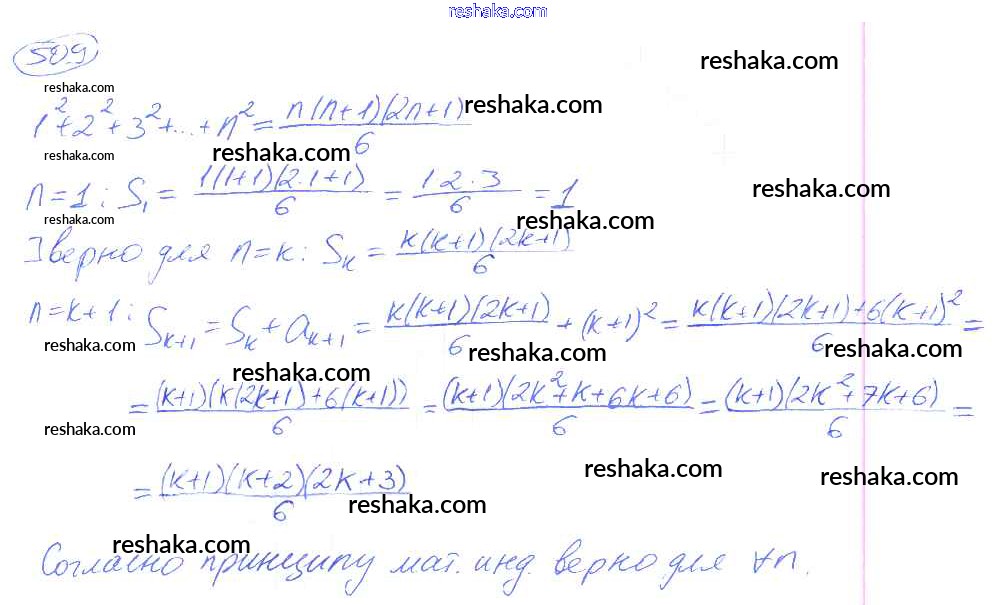 reshaka.com
509
reshaka.com
reshaka.com
1² + 2² + 3² + ... + n² = n(n+1)(2n+1)/6
reshaka.com
reshaka.com
reshaka.com
n=1: S₁ = 1(1+1)(2·1+1)/6 = 1·2·3/6 = 1
reshaka.com
reshaka.com
reshaka.com
] верно для n=k: Sₖ = k(k+1)(2k+1)/6
n=k+1: Sₖ₊₁ = Sₖ + aₖ₊₁ = k(k+1)(2k+1)/6 + (k+1)² = k(k+1)(2k+1)+6(k+1)²/6 =
reshaka.com
reshaka.com
reshaka.com
reshaka.com
= (k+1)(k(2k+1)+6(k+1))/6 = (k+1)(2k²+k+6k+6)/6 = (k+1)(2k²+7k+6)/6 =
reshaka.com
reshaka.com
reshaka.com
= (k+1)(k+2)(2k+3)/6
reshaka.com
reshaka.com
Согласно принципу мат. инд. верно для ∀n.